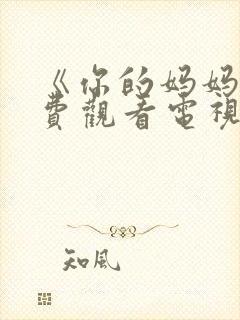 《你的妈妈
费觀看電視
知風